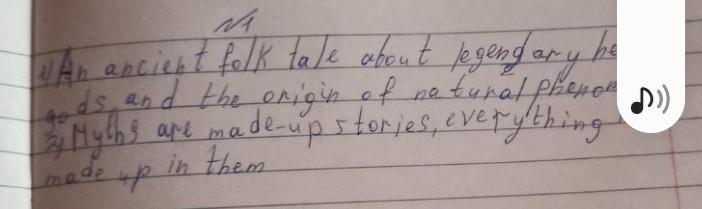 №1
1) An ancient folk tale about legendary he
gods and the origin of natural phenom
2) Myths are made-up stories, everything
made up in them